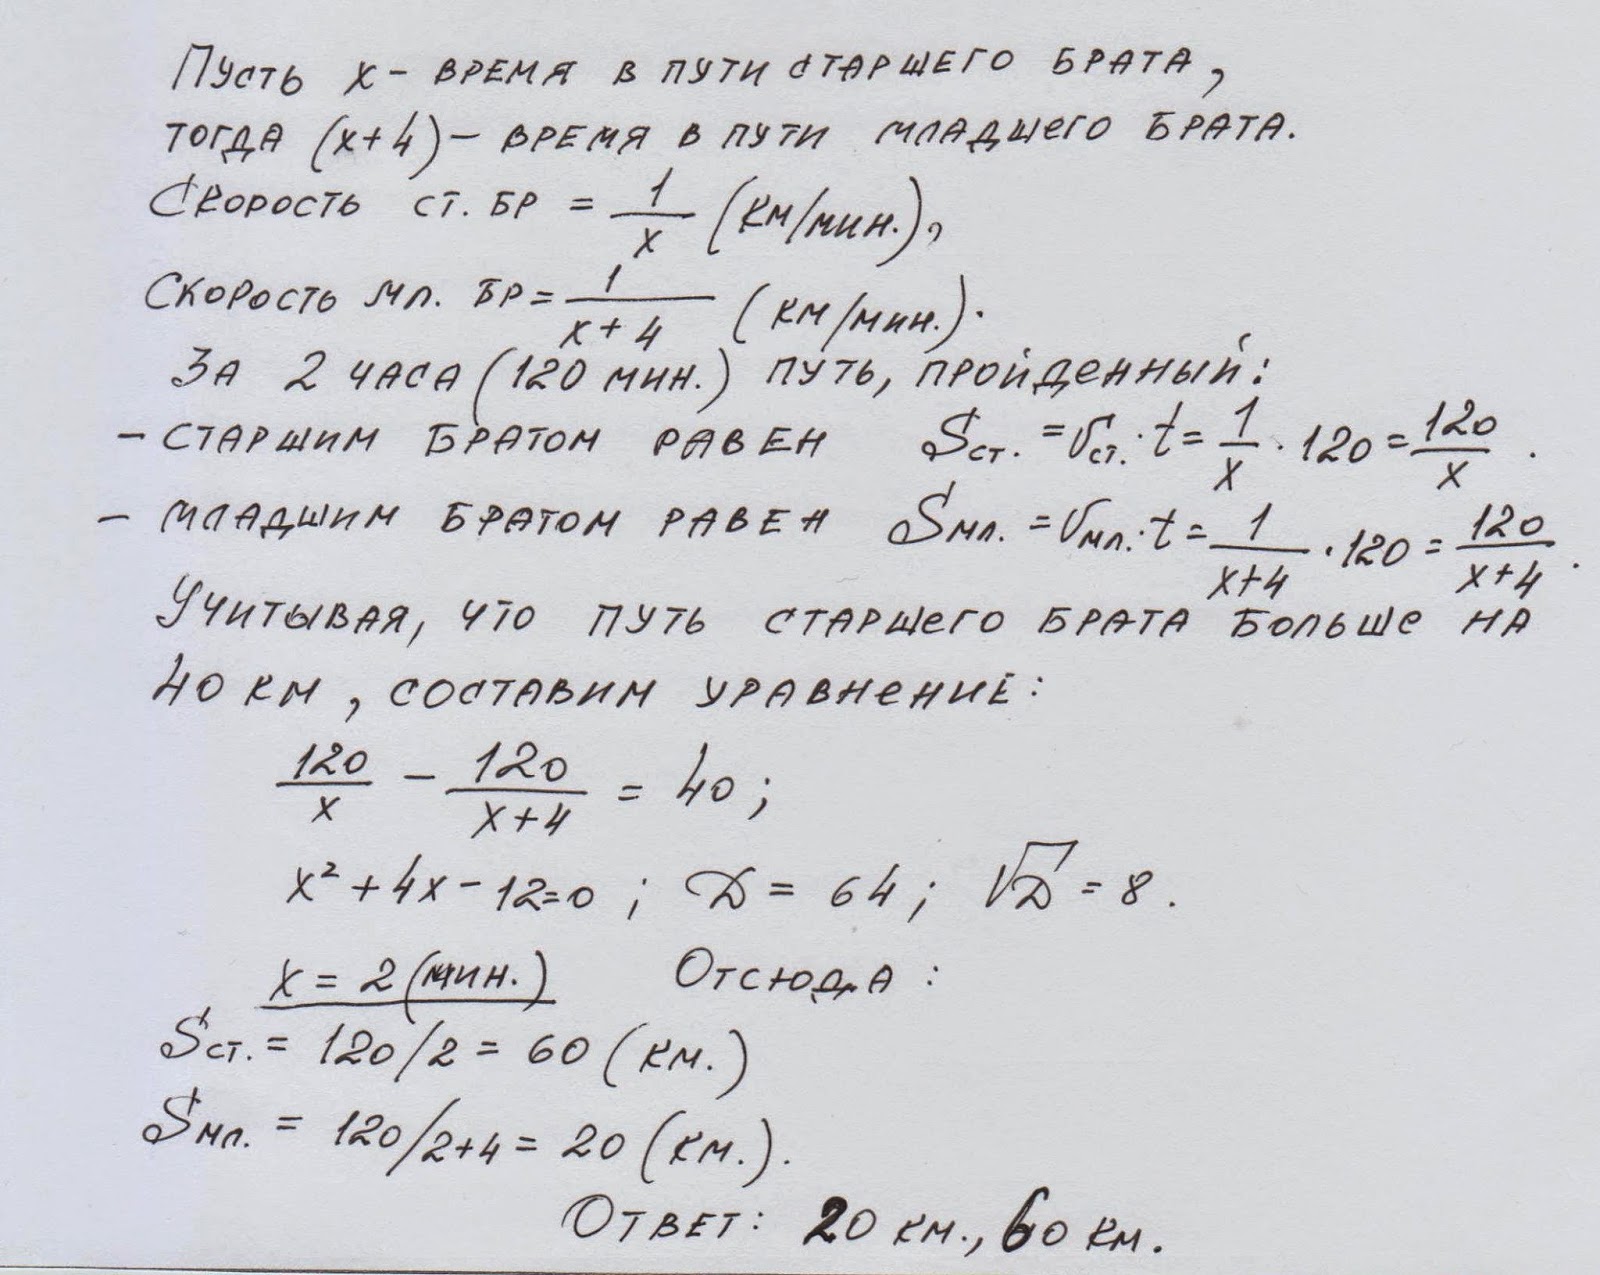 Пусть x - время в пути старшего брата,
тогда (x+4) - время в пути младшего брата.
Скорость ст. бр = 1/x (км/мин.),
Скорость мл. бр = 1/(x+4) (км/мин.).
За 2 часа (120 мин.) путь, пройденный:
- старшим братом равен Sст. = Vст. · t = 1/x · 120 = 120/x.
- младшим братом равен Sмл. = Vмл. · t = 1/(x+4) · 120 = 120/(x+4).
Учитывая, что путь старшего брата больше на
40 км, составим уравнение:
120/x - 120/(x+4) = 40;
x² + 4x - 12 = 0; D = 64; √D = 8.
x = 2 (мин.) Отсюда:
Sст. = 120/2 = 60 (км.)
Sмл. = 120/2+4 = 20 (км.).
Ответ: 20 км., 60 км.